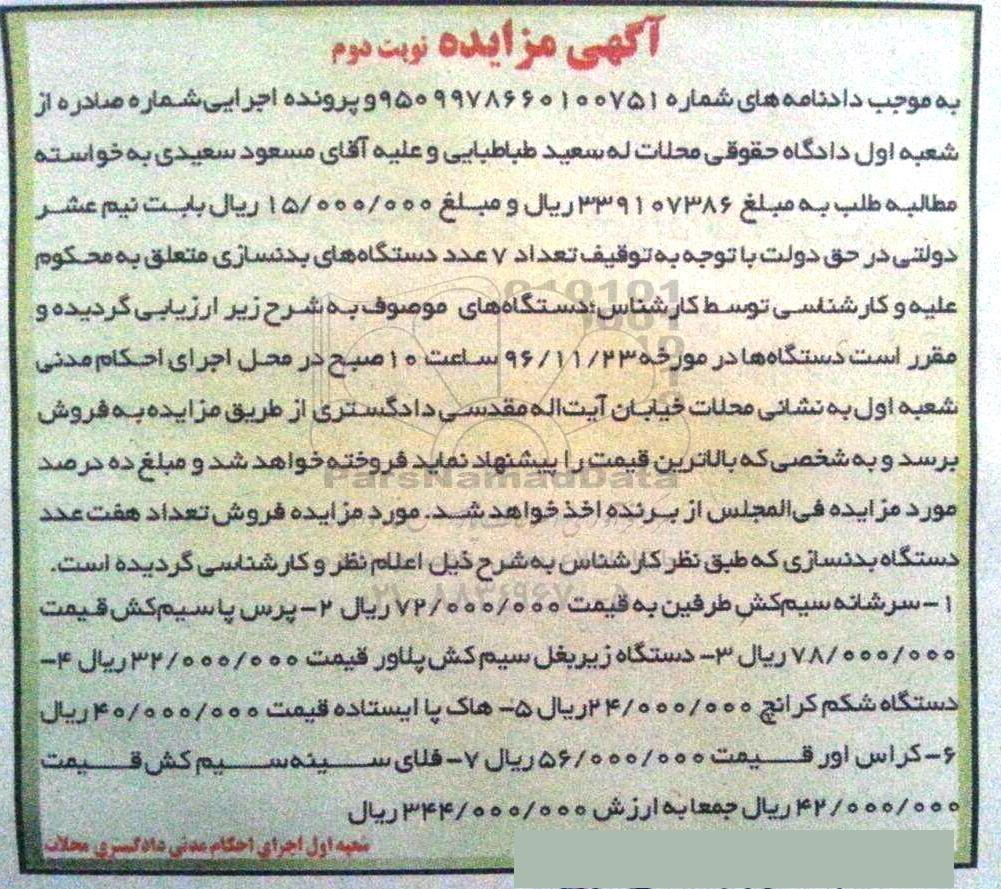 آگهی مزایده نوبت دوم
به موجب دادنامه های شماره ۹۵۰۹۹۷۸۶۶۰۱۰۰۷۵۱و پرونده اجرایی شماره صادره از
شعبه اول دادگاه حقوقی محلات له سعید طباطبایی و علیه آقای مسعود سعیدی به خواسته
مطالبه طلب به مبلغ ۳۳۹۱۰۷۳۸۶ریال و مبلغ ۱۵/۰۰۰/۰۰۰ ریال بابت نیم عشر
دولتی در حق دولت با توجه به توقیف تعداد ۷ عدد دستگاه‌های بدنسازی متعلق به محکوم
علیه و کارشناسی توسط کارشناس؛دستگاه‌های موصوف به شرح زیر ارزیابی گردیده و
مقرر است دستگاه‌ها در مورخه ۹۶/۱۱/۲۳ ساعت ۱۰ صبح در محل اجرای احکام مدنی
شعبه اول به نشانی محلات خیابان آیت‌اله مقدسی دادگستری از طریق مزایده به فروش
برسد و به شخصی که بالاترین قیمت را پیشنهاد نماید فروخته خواهد شد و مبلغ ده درصد
ParsNamadData
مورد مزایده فی‌المجلس از برنده اخذ خواهد شد. مورد مزایده فروش تعداد هفت عدد
دستگاه بدنسازی که طبق نظر کارشناس به شرح ذیل اعلام نظر و کارشناسی گردیده است.
۱- سرشانه سیم‌کش طرفین به قیمت ۷۲/۰۰۰/۰۰۰ ریال ۲- پرس پا سیم‌کش قیمت
۷۸/۰۰۰/۰۰۰ ریال ۳- دستگاه زیربغل سیم کش پلاور قیمت ۳۲/۰۰۰/۰۰۰ ریال ۴-
دستگاه شکم کرانچ ۲۴/۰۰۰/۰۰۰ریال ۵- هاک پا ایستاده قیمت ۴۰/۰۰۰/۰۰۰ ریال
۶- کراس اور قیمت ۵۶/۰۰۰/۰۰۰ ریال ۷- فلای سینه سیم کش قیمت
۴۲/۰۰۰/۰۰۰ ریال جمعا به ارزش ۳۴۴/۰۰۰/۰۰۰ ریال
شعبه اول اجرای احکام مدنی دادگستری محلات